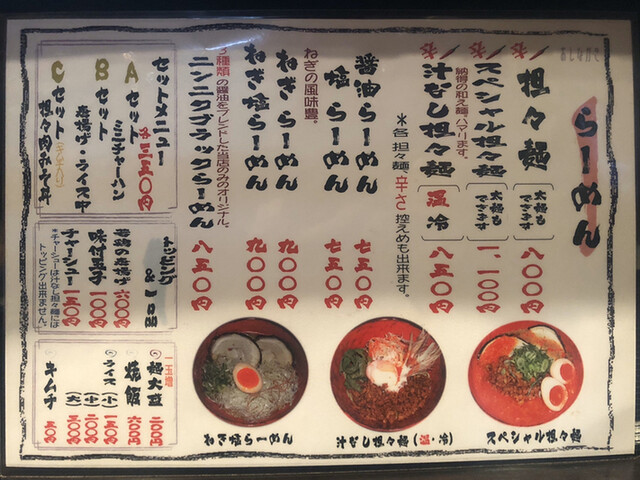 らーめん
担々麺
太麺も
できます
八〇〇円
スペシャル担々麺
太麺も
できます
一、一〇〇円
納得の和え麺、ハマります。
汁なし担々麺
温 冷
八五〇円
＊各 担々麺、辛さ 控えめも出来ます。
醤油らーめん
七五〇円
塩らーめん
七五〇円
ねぎの風味豊。
ねぎらーめん
九〇〇円
ねぎ塩らーめん
九〇〇円
3種類の醤油をブレンドした当店のみのオリジナル。
ニンニクブラックらーめん
八五〇円
セットメニュー
各三五〇円
Aセット
ミニチャーハン
Bセット
唐揚げ・ライス中
Cセット
担々肉みそ丼
トッピング
若鶏の唐揚げ 六〇〇円
味付玉子 一〇〇円
チャーシュー 三〇〇円
チャーシューは汁なし担々麺には
トッピング出来ません。
麺大盛
焼飯
ライス(小)
(中)
(大)
キムチ
スペシャル担々麺
汁なし担々麺(温・冷)
ねぎ塩らーめん